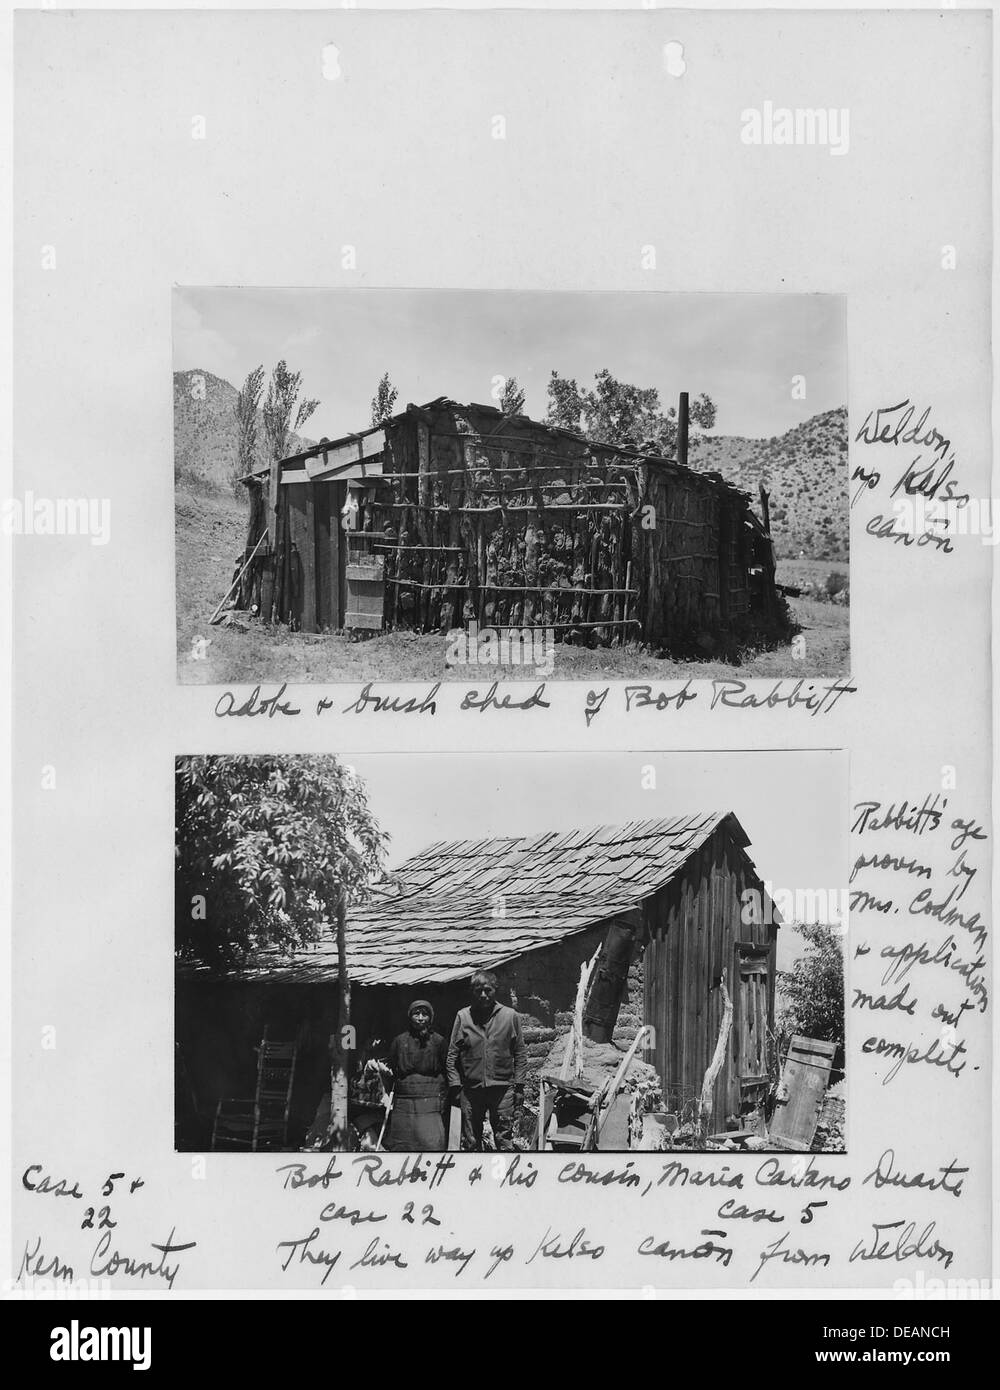 Weldon,
up Kelso
cañon
Adobe & brush shed of Bob Rabbitt
Rabbitt's age
proven by
Mrs. Codman
& application
made out
complete.
Case 5 &
22
Kern County
Bob Rabbitt & his cousin, Maria Cavano Duarte
Case 22 Case 5
They live way up Kelso cañon from Weldon
alamy
alamy
alamy
Image ID: DEANCH
www.alamy.com